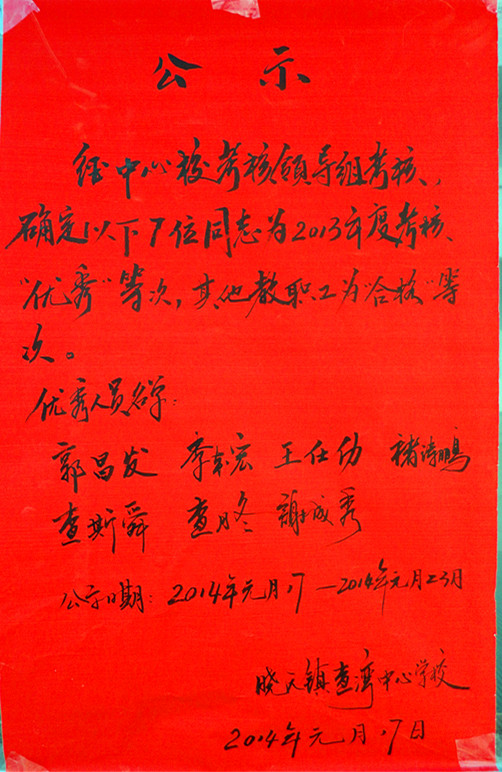 公示
经中心校考核领导组考核,
确定以下7位同志为2013年度考核
"优秀"等次,其他教职工为"合格"等
次。
优秀人员名单:
郭昌发 李东宏 王任仂 褚涛鹏
查斯舜 查月冬 谢成秀
公示日期:2014年元月17—2014年元月23日
晓天镇查湾中心学校
2014年元月17日